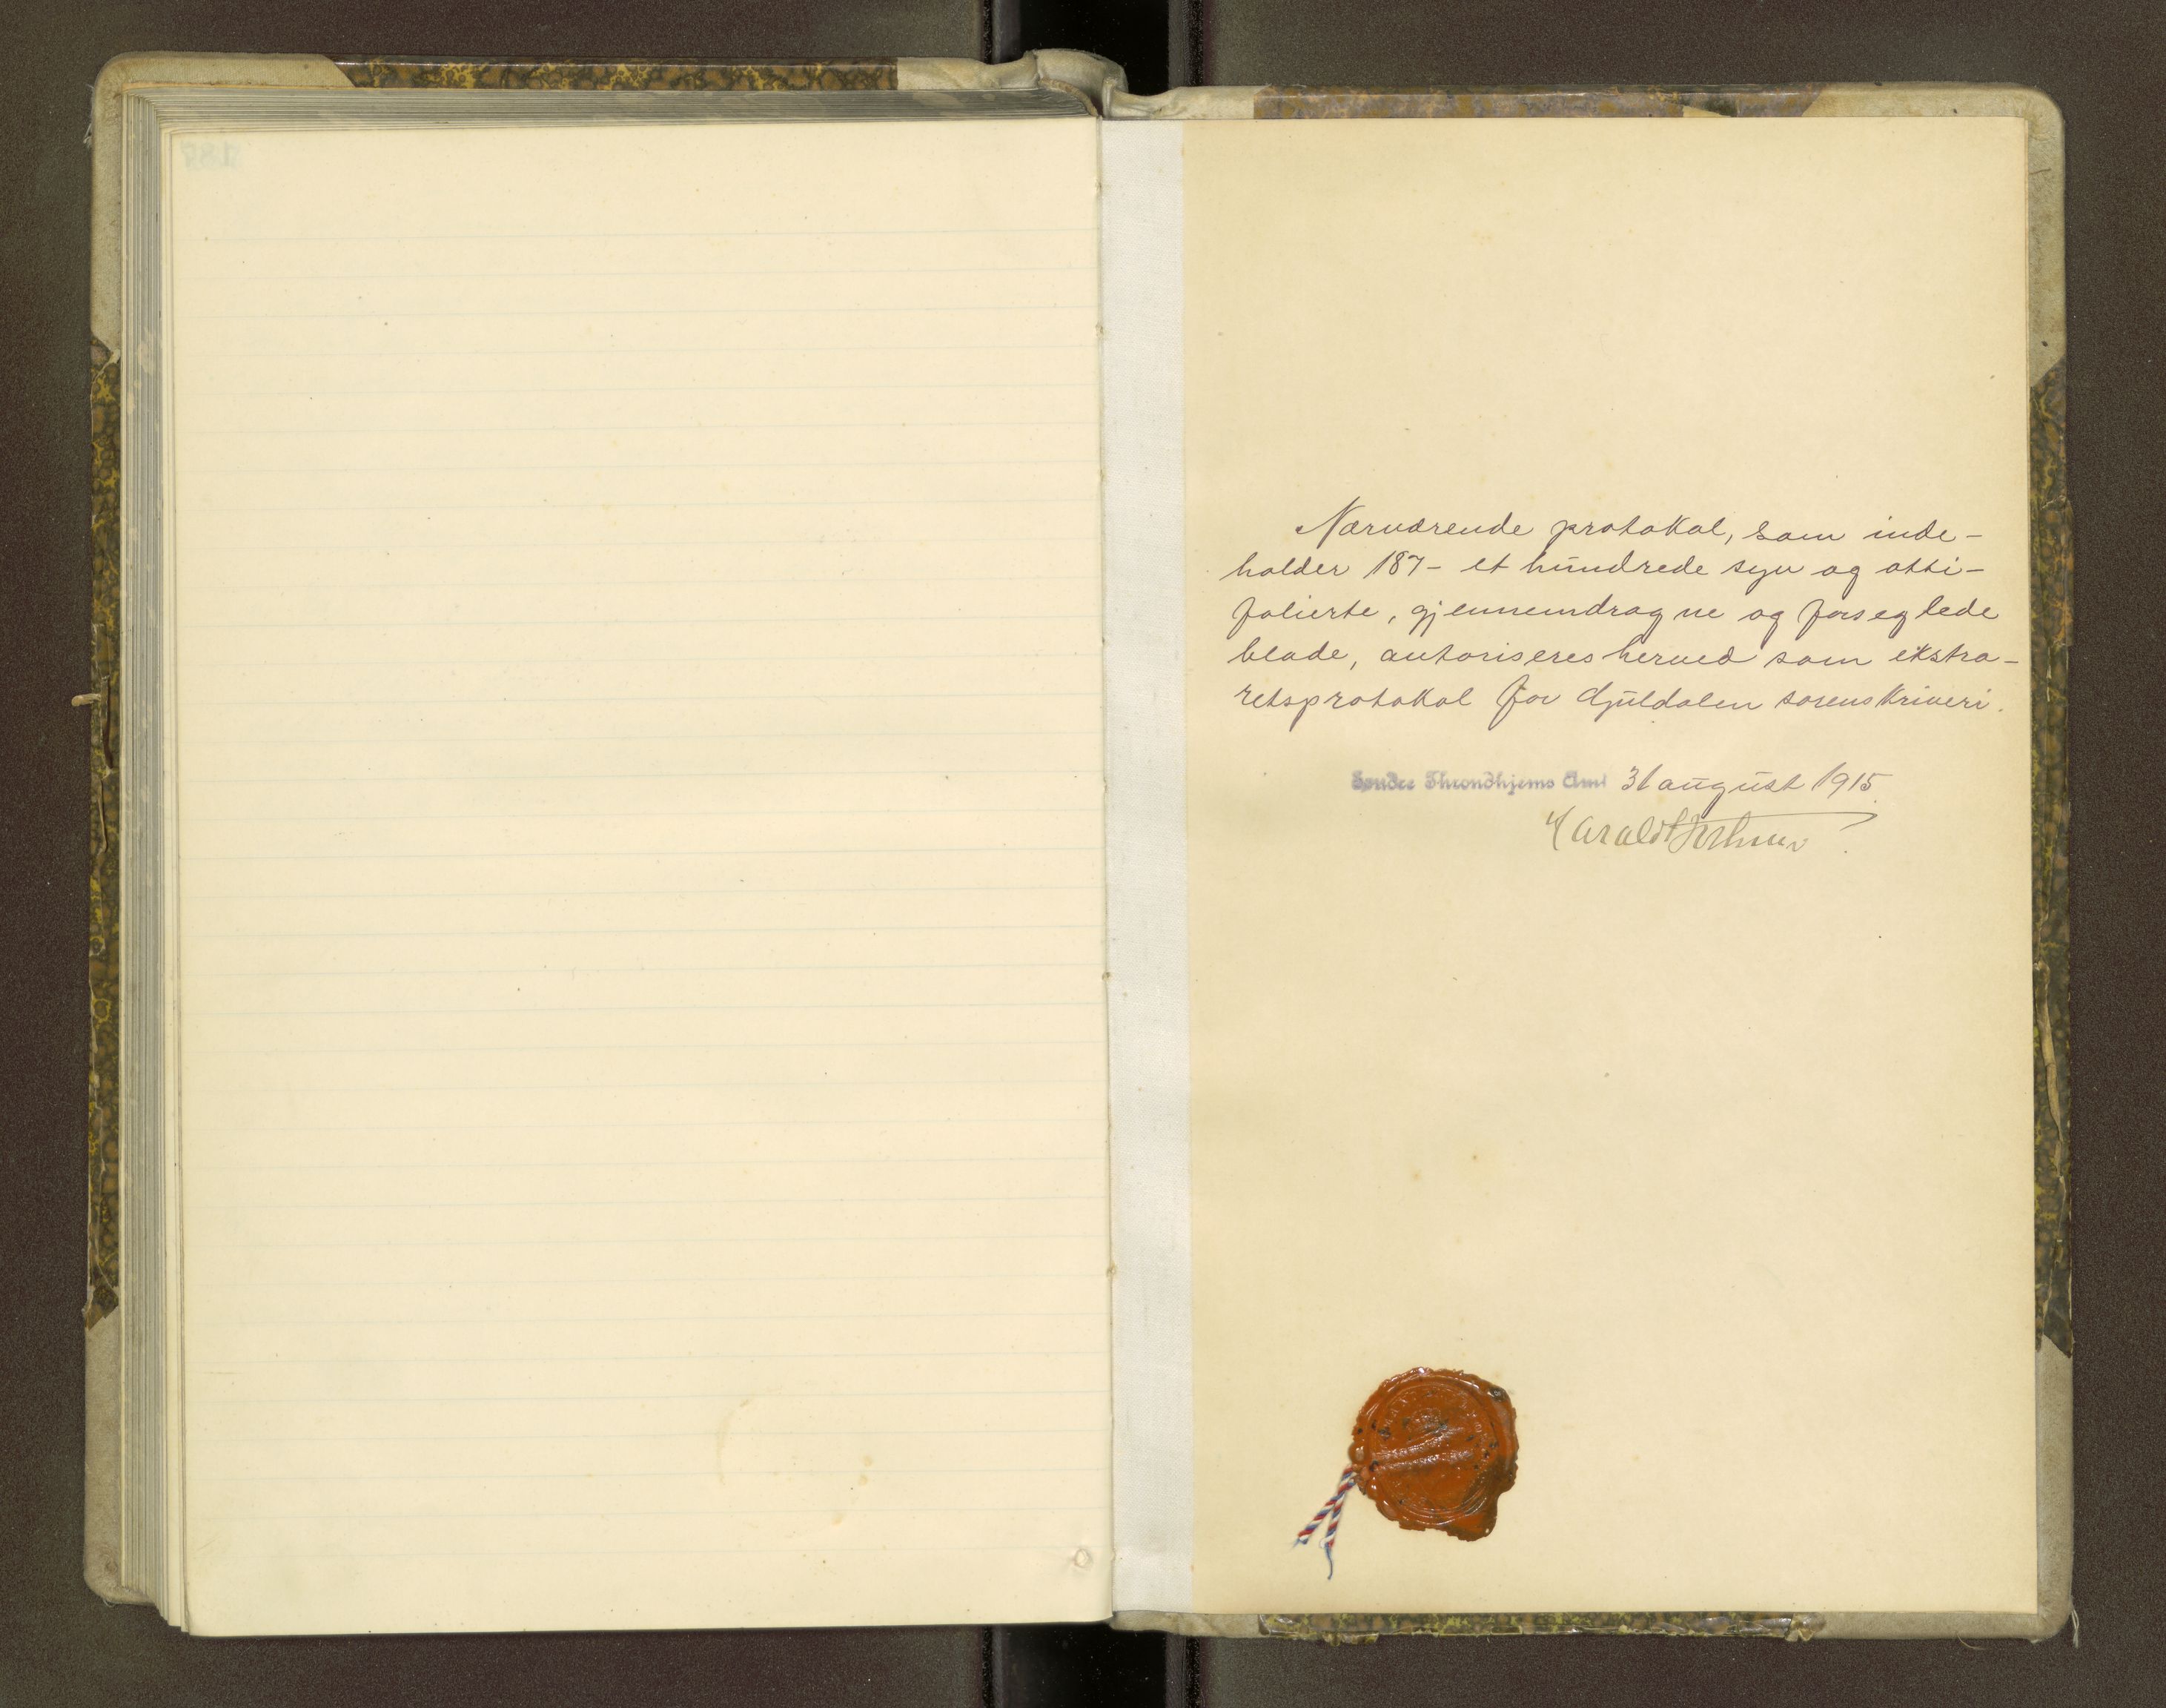 Nærværende protokol, som inde-
holder 187 - et hundrede syv og otti -
folierte, gjennemdragne og forseglede
blade, autoriseres herved som ekstra-
retsprotokol for Guldalen sorenskriveri.
Søndre Throndhjems Amt 31 august 1915.
Harald Bothner
187